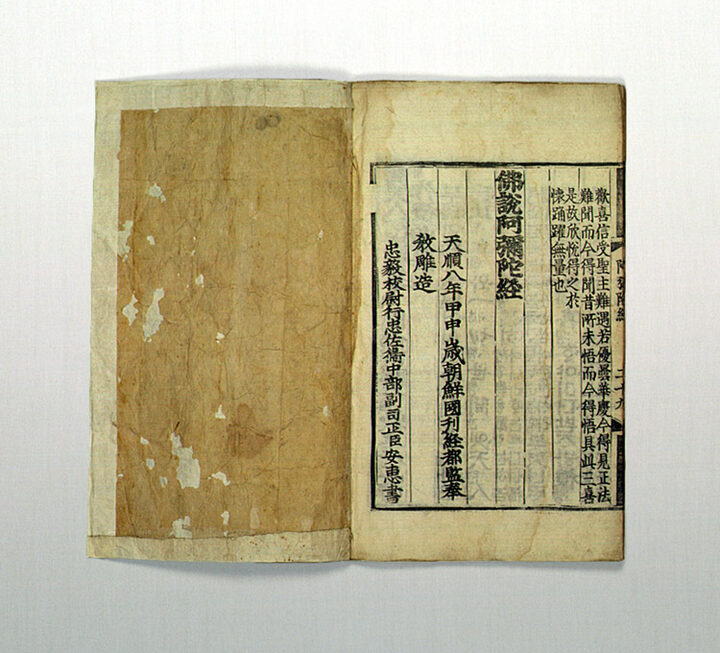 歡喜信受聖主難遇若優曇華慶今得見正法
難聞而今得聞昔所未悟而今得悟具此三喜
是故欣悅得之於
懷踊躍無量也
佛說阿彌陀經
天順八年甲申歲朝鮮國刊經都監奉
敎雕造
忠毅校尉行忠佐衛中部副司正臣安惠書
二十九